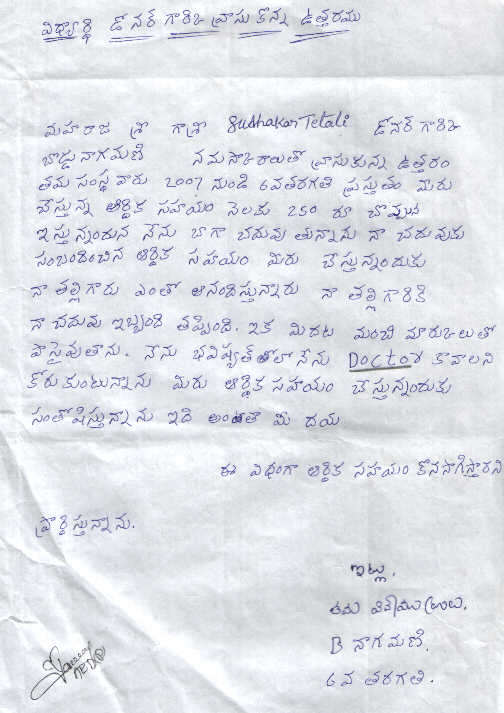 విద్యార్థి డోనర్ గారికి వ్రాసు కొన్న ఉత్తరము
మహరాజ శ్రీ గాశ్రీ Sudhakar Tetali డోనర్ గారికి
బాడ్డు నాగమణి నమస్కారాలతో వ్రాసుకున్న ఉత్తరం
తమ సంస్థ వారు 2007 నుండి 6వతరగతి ప్రస్తుతం మీరు
చేస్తున్న ఆర్థిక సహయం నెలకు 250 రూ చొప్పున
ఇస్తున్నందున నేను బాగా చదువు తున్నాను నా చదువుకు
సంబంధించిన ఆర్థిక సహయం మీరు చేస్తున్నందుకు
నా తల్లిగారు ఎంతో ఆనందిస్తున్నారు నా తల్లి గారికి
నా చదువు ఇబ్బంది తప్పింది. ఇక మీదట మంచి మారుకులతో
పాసైవుతాను. నేను భవిష్యత్ తోలానేను Doctor కావాలని
కోరుకుంటున్నాను మీరు ఆర్థిక సహయం చేస్తున్నందుకు
సంతోషిస్తున్నాను ఇది అంతా మీ దయ
ఈ విధంగా ఆర్థిక సహయం కొనసాగిస్తారని
ప్రార్థిస్తున్నాను.
ఇట్లు,
తమ విధేయురాలు,
B నాగమణి.
6వ తరగతి.